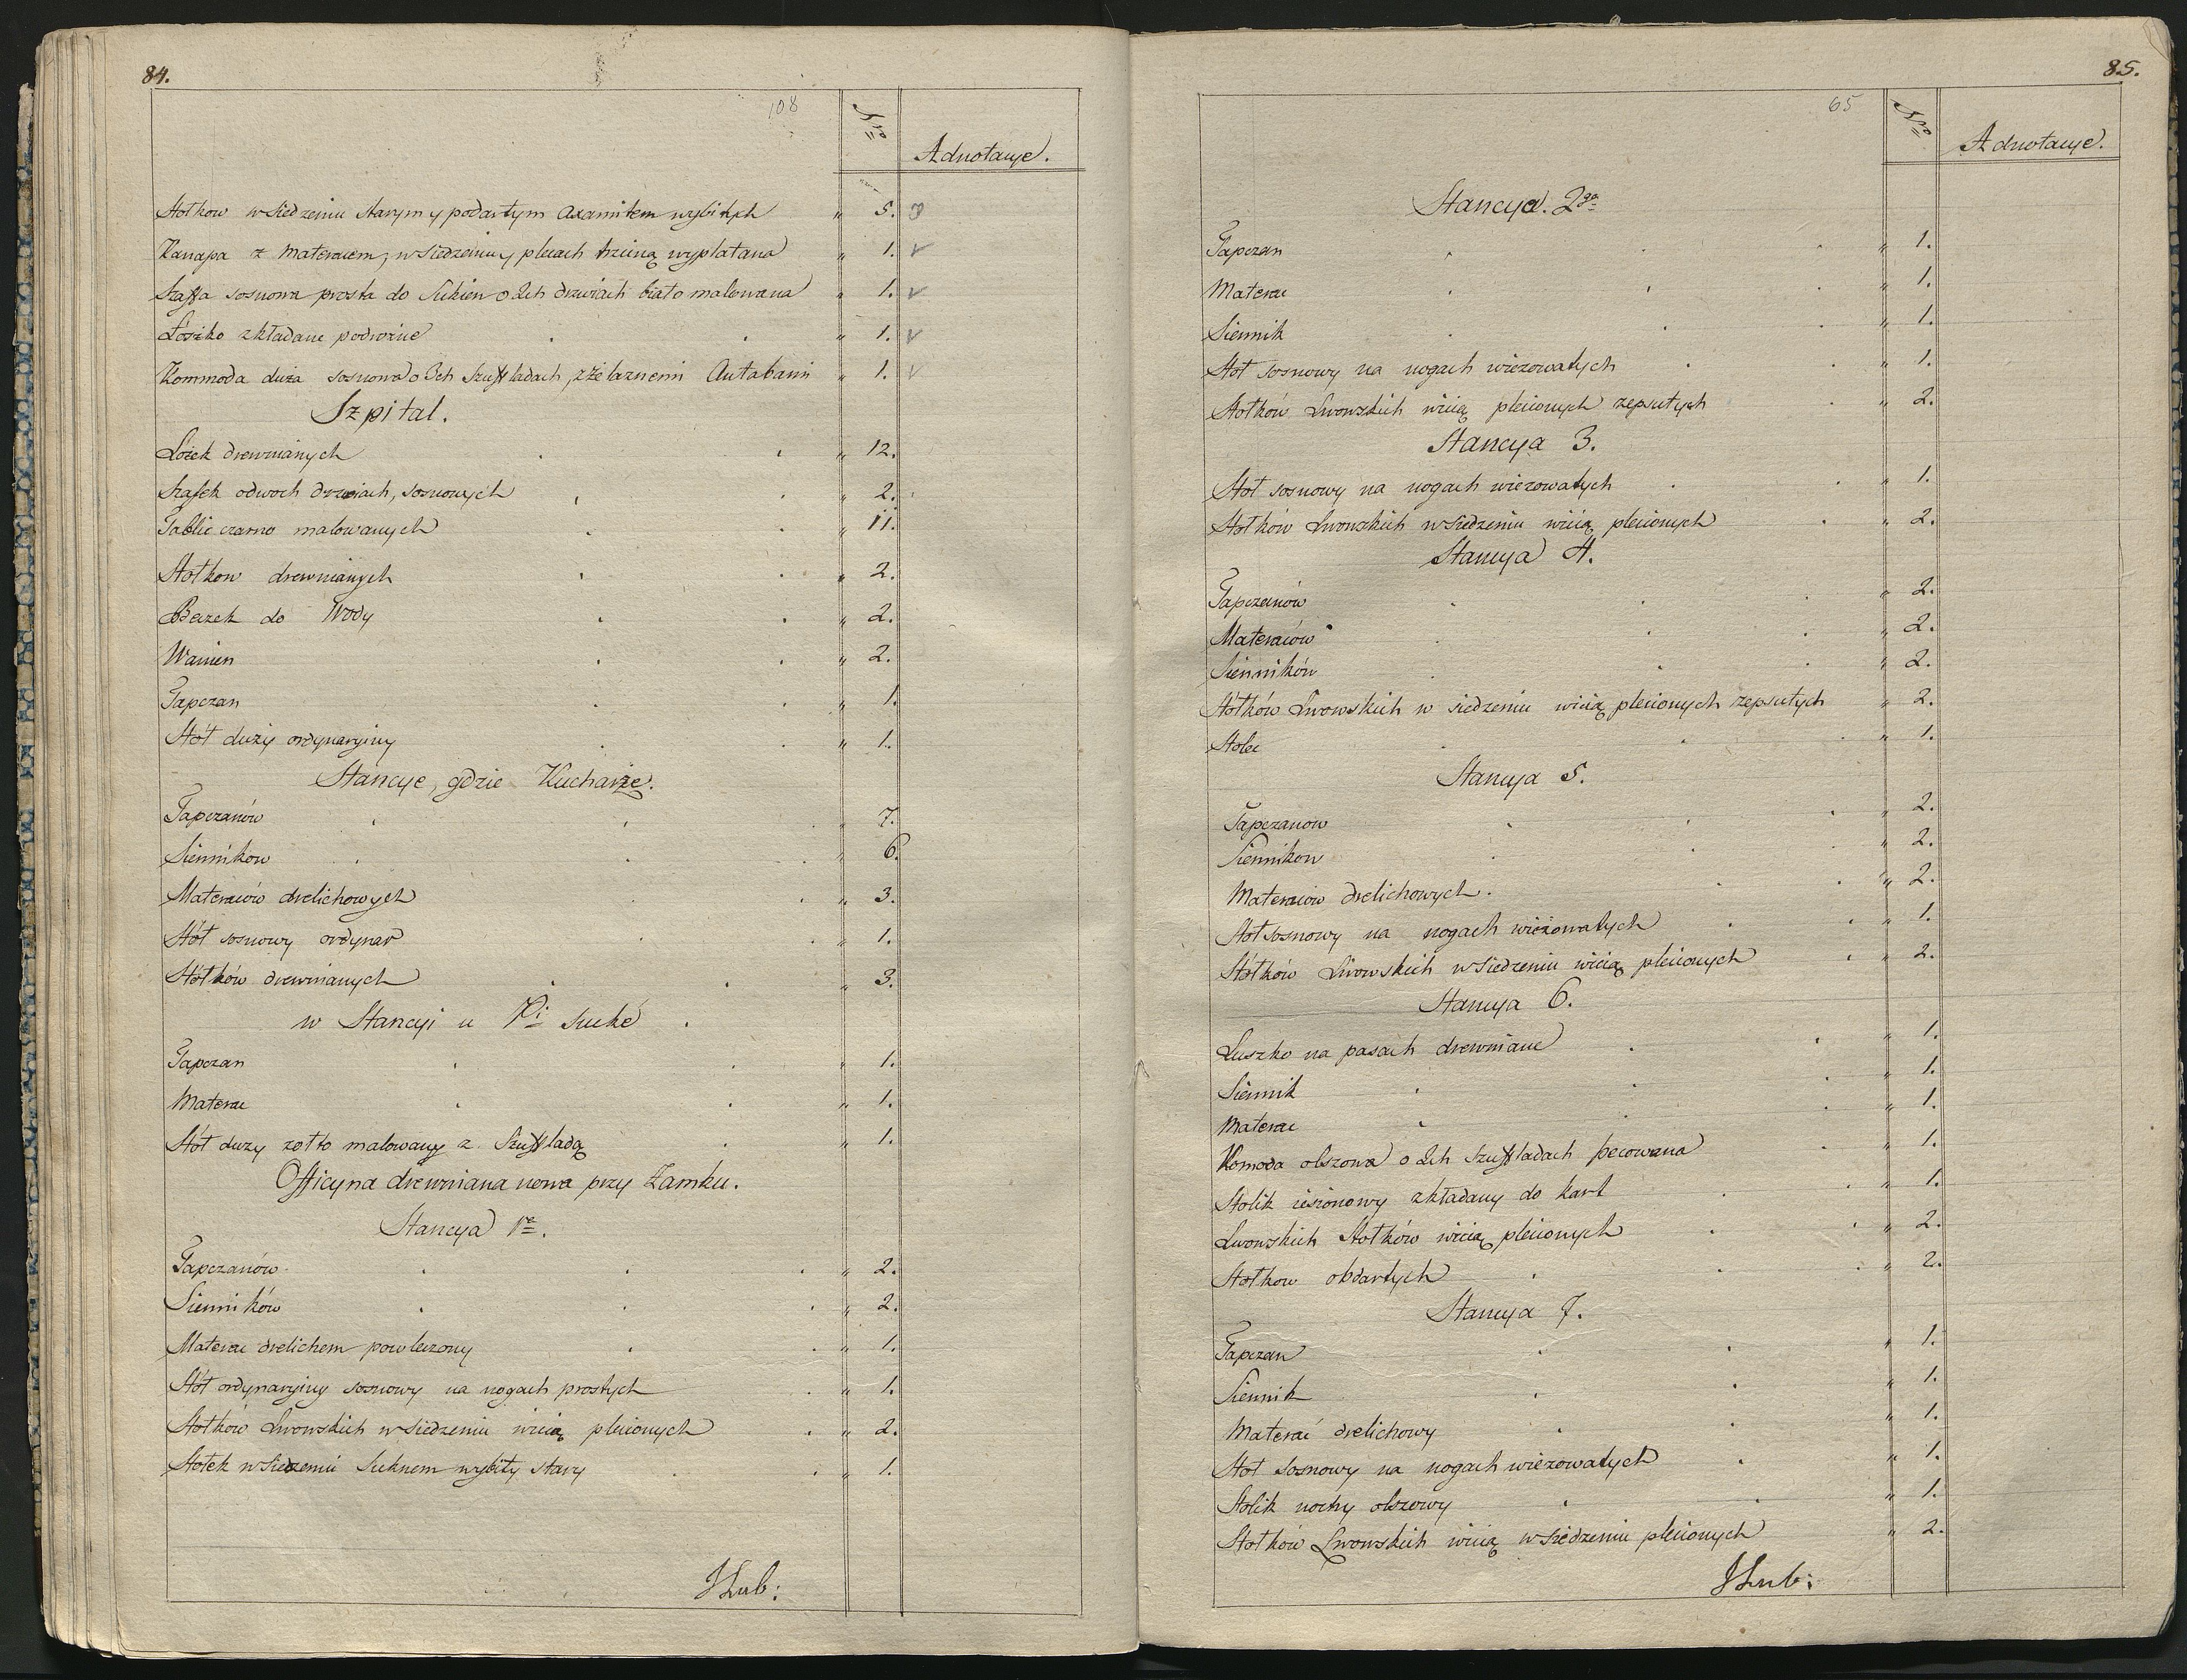 84.
108
Nro
Adnotacye.
Stołkow w siedzeniu starym y podartym Axamitem wybitych " 5. 3
Kanapa z Materacem, w siedzeniu y plecach trzciną wyplatana " 1. v
Szaffa sosnowa prosta do Sukien o 2ch drzwiach biało malowana " 1. v
Łószko zkładane podróżne " 1. v
Kommoda duża sosnowa o 3ch Szuffladach, z żelaznemi Antabami " 1. v
Szpital.
Łóżek drewnianych " 12.
Szafek o dwoch drzwiach, sosnowych " 2.
Tablic czarno malowanych " 11.
Stołkow drewnianych " 2.
Beczek do Wody " 2.
Wanien " 2.
Tapczan " 1.
Stół duży ordynaryiny " 1.
Stancye, gdzie Kucharze.
Tapczanów " 7.
Sienników " 6.
Materaców drelichowych " 3.
Stół sosnowy ordynar " 1.
Stółków drewnianych " 3.
w Stancyi u Pi Suché
Tapczan " 1.
Materac " 1.
Stół duzy zołto malowany z Szuffladą " 1.
Officyna drewniana nowa przy Zamku.
Stancya 1a.
Tapczanów " 2.
Sienników " 2.
Materac drelichem powleczony " 1.
Stół ordynaryiny sosnowy na nogach prostych " 1.
Stołków Lwowskich w siedzeniu wicią plecionych " 2.
Stołek w siedzeniu Suknem wybity stary " 1.
JLub:
85.
65
Nro
Adnotacye.
Stancya. 2ga
Tapczan " 1.
Materac " 1.
Siennik " 1.
Stół sosnowy na nogach wiezowatych " 1.
Stołków Lwowskich wicią plecionych zepsutych " 2.
Stancya 3.
Stół sosnowy na nogach wiezowatych " 1.
Stołków Lwowskich w siedzeniu wicią plecionych " 2.
Stancya 4.
Tapczanów " 2.
Materaców " 2.
Sienników " 2.
Stółków Lwowskich w siedzeniu wicią plecionych zepsutych " 2.
Stolec " 1.
Stancya 5.
Tapczanow " 2.
Siennikow " 2.
Materacow drelichowych " 2.
Stół sosnowy na nogach wieżowatych " 1.
Stółków Lwowskich w siedzeniu wicią plecionych " 2.
Stancya 6.
Luszko na pasach drewniane " 1.
Siennik " 1.
Materac " 1.
Komoda olszowa o 2ch Szuffladach becowana " 1.
Stolik iesionowy zkładany do kart " 1.
Lwowskich Stołków wicią plecionych " 2.
Stołkow obdartych " 2.
Stancya 7.
Tapczan " 1.
Siennik " 1.
Materac drelichowy " 1.
Stół sosnowy na nogach wiezowatych " 1.
Stolik nocny olszowy " 1.
Stołków Lwowskich wicią w siedzeniu plecionych " 2.
JLub: